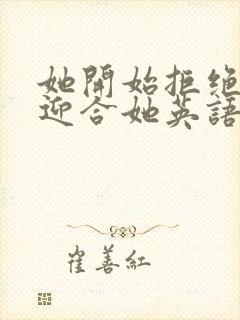 她開始拒絕
迎合她英語
崔善紅